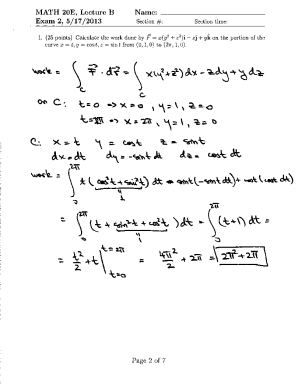 MATH 20E, Lecture B Name:
Exam 2, 5/17/2013 Section #: Section time:
1. (25 points) Calculate the work done by F⃗ = x(y² + z²)i − zj + yk on the portion of the
curve x = t, y = cos t, z = sin t from (0, 1, 0) to (2π, 1, 0).
work = ∫_C F⃗ · dr⃗ = ∫_C x(y²+z²)dx − z dy + y dz
on C: t=0 ⇒ x=0, y=1, z=0
t=2π ⇒ x=2π, y=1, z=0
C: x = t y = cost z = sint
dx = dt dy = −sint dt dz = cost dt
work = ∫_0^{2π} t(cos²t + sin²t) dt − sint(−sint dt) + cost(cost dt)
1
= ∫_0^{2π} (t + sin²t + cos²t) dt = ∫_0^{2π} (t+1) dt =
1
= t²/2 + t |_{t=0}^{t=2π} = 4π²/2 + 2π = 2π² + 2π
Page 2 of 7